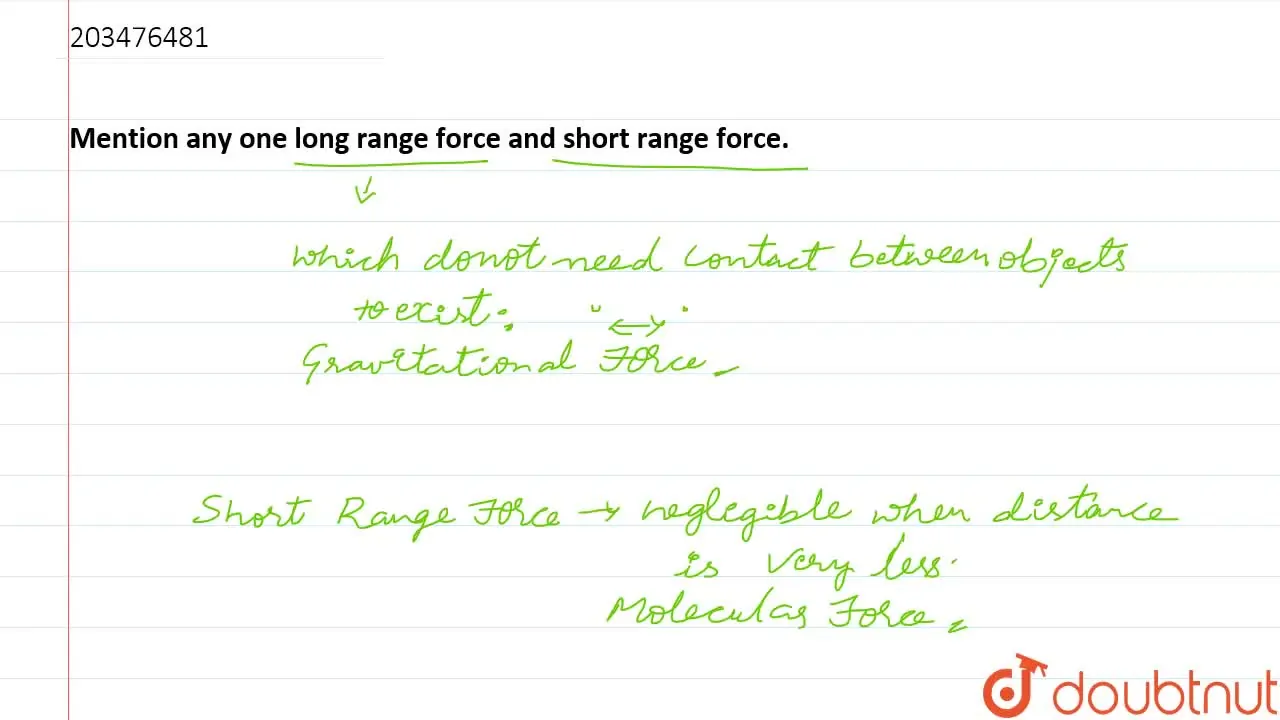 203476481
Mention any one long range force and short range force.
which donot need contact between objects
to exist.
Gravitational Force
Short Range Force → neglegible when distance
is very less.
Molecular Force
doubtnut